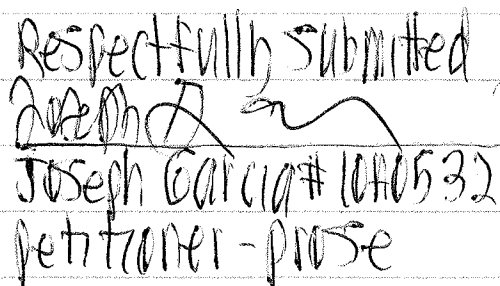 Respectfully Submitted
Joseph G
Joseph Garcia # 10A0532
petitioner - prose